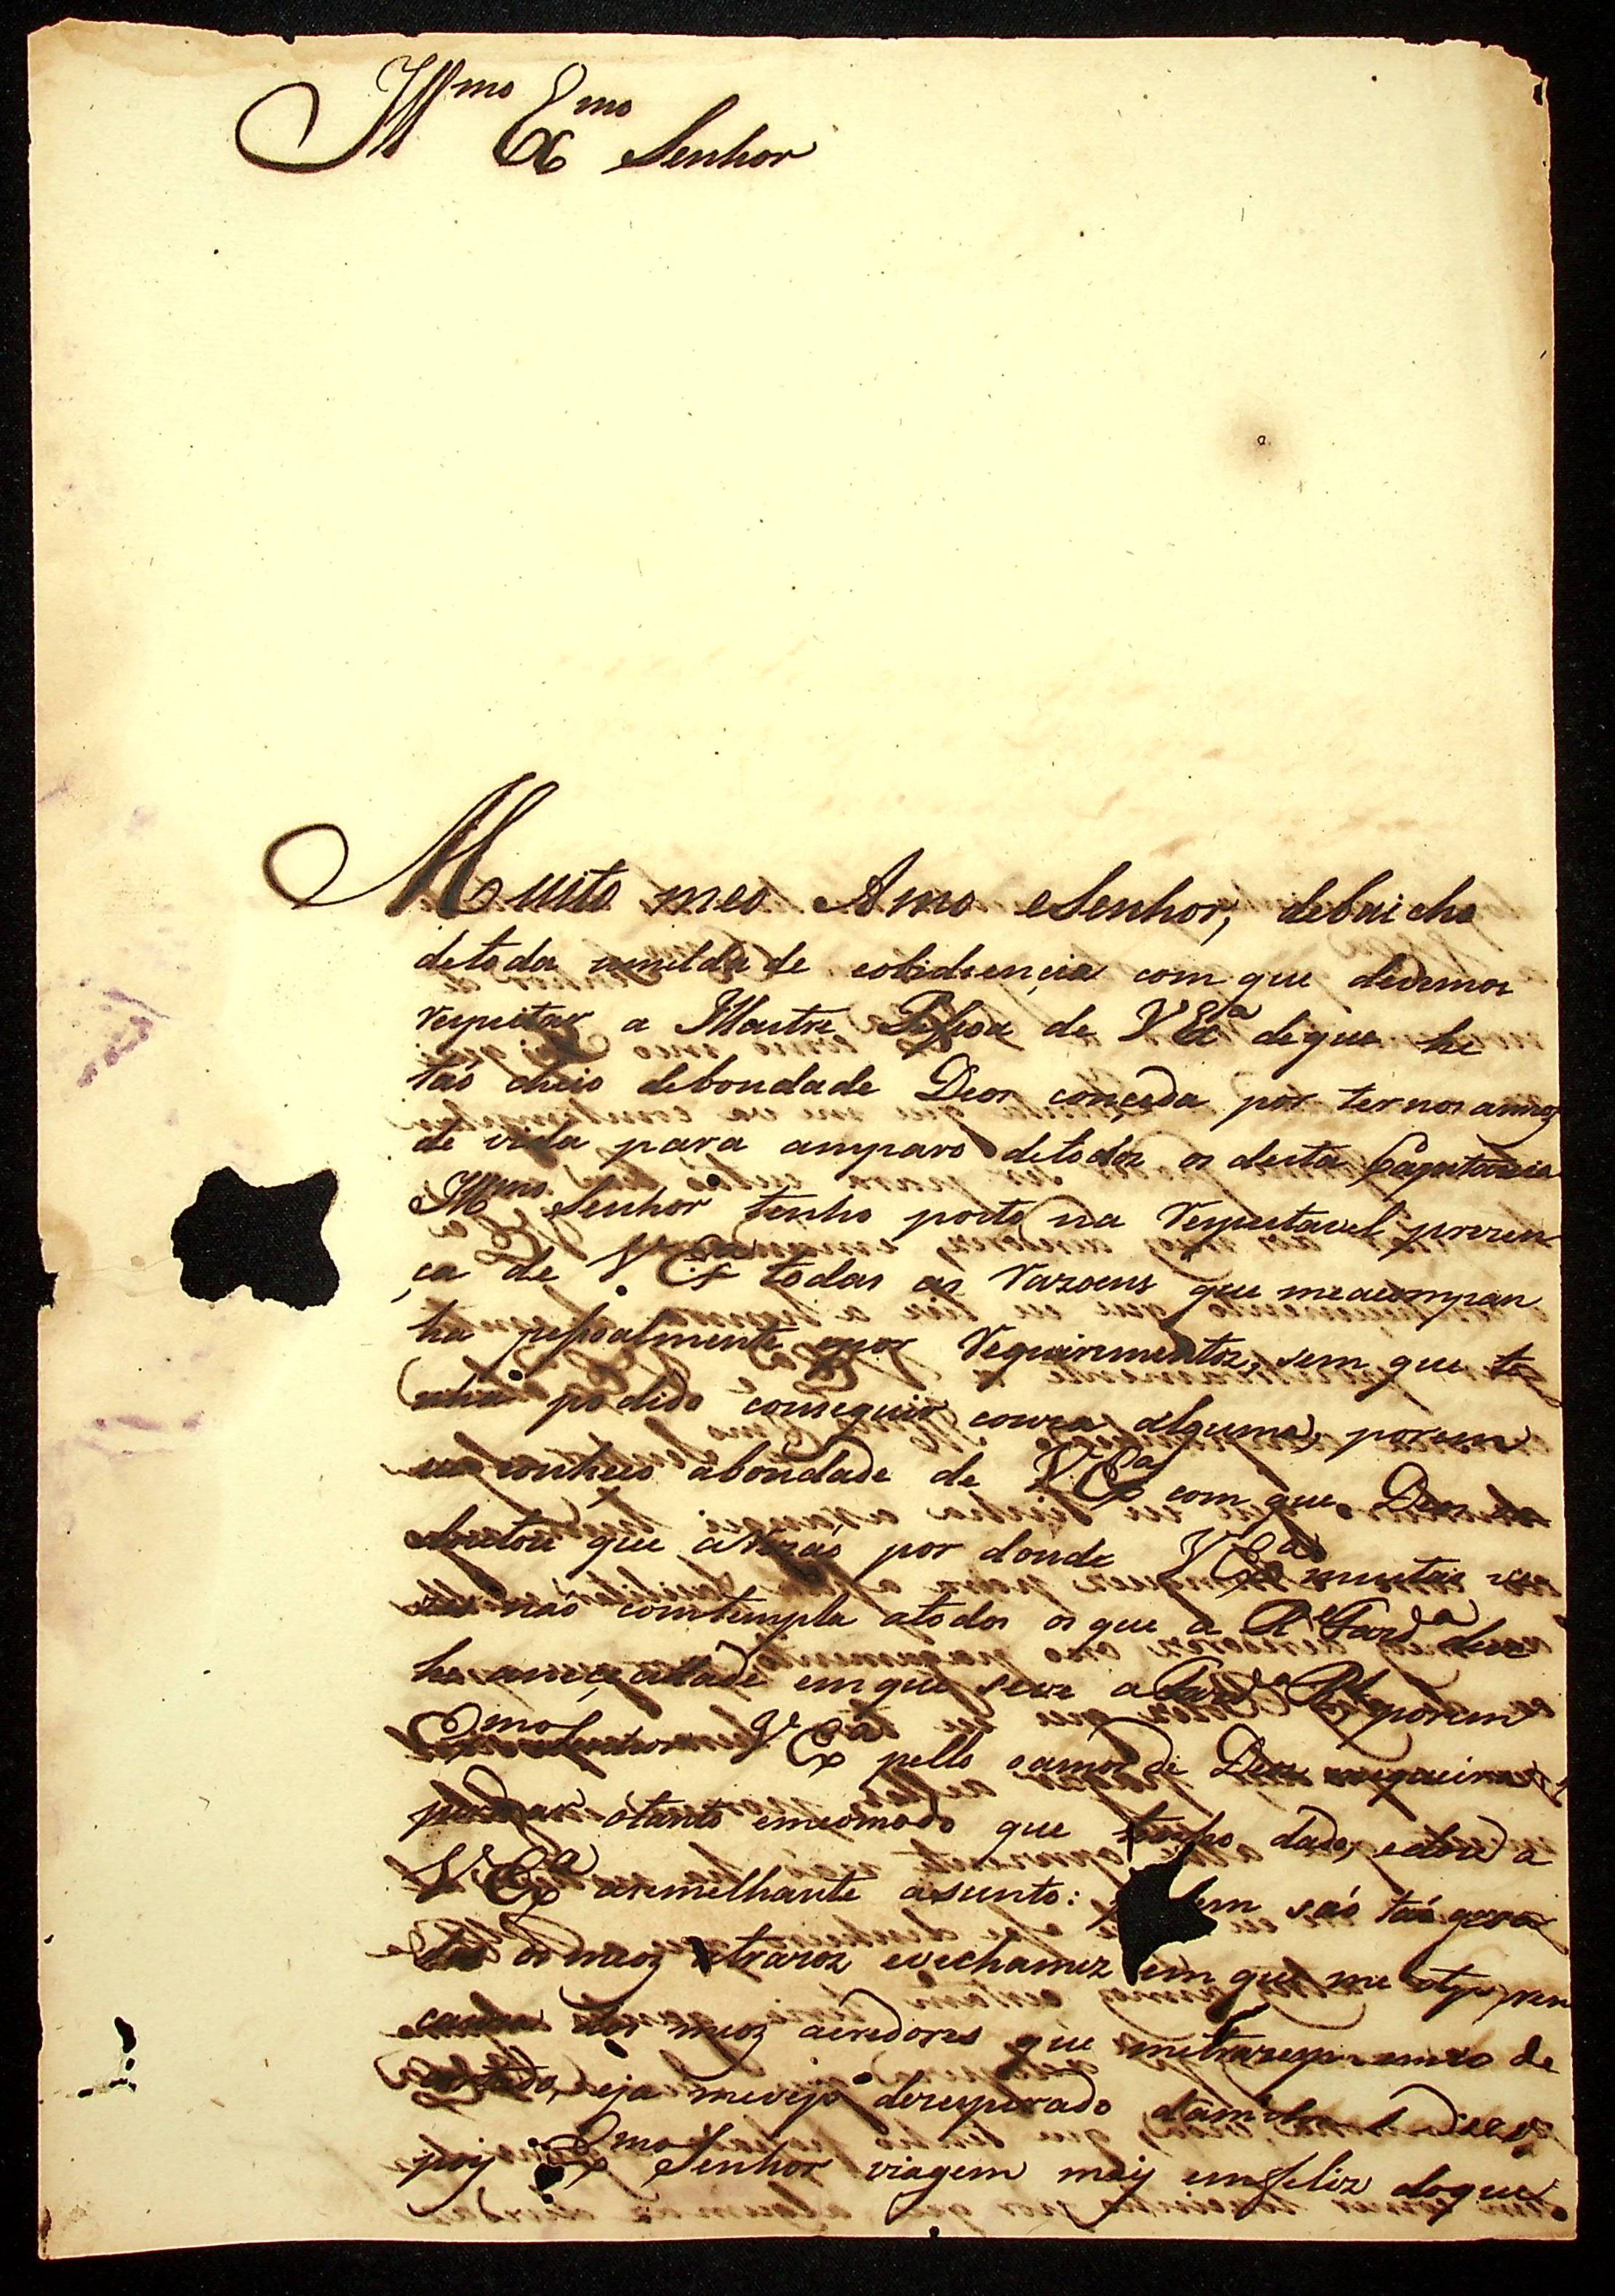 Illmo Exmo Senhor
Muito meo Amo eSenhor, debaicho
detoda umilda de eobidiencia com que devemos
respeitar a Illustre Pessoa de V Exa deque he
tão cheio debondade Deos conçeda por ternos annos
de vida para amparo detodos os desta Capitania
Illmo Senhor tenho posto na respeitavel prezen
ça de V Exa todas as razoens que meacompan
ha pessoalmente epor requirimentos, sem que te
nha podido conseguir couza alguma, porem
abondade de V Exa com que Deos
dontou que por donde V Exa muitas ve
zes não comtempla atodos os que a Rl Fazda deve
em que seve a Fazda Rl porem
Exmo Senhor V Exa pello oamor de Deos mequeira
perduar otanto emcomodo que tenho dado, edoue a
V Exa asemelhante asunto: em são tão gran
des os meoz atrazoz evechamez em que me
cauza dos meoz acredores que
eja mevejo desesperado
pois Exmo Senhor viagem mais emfeliz doque